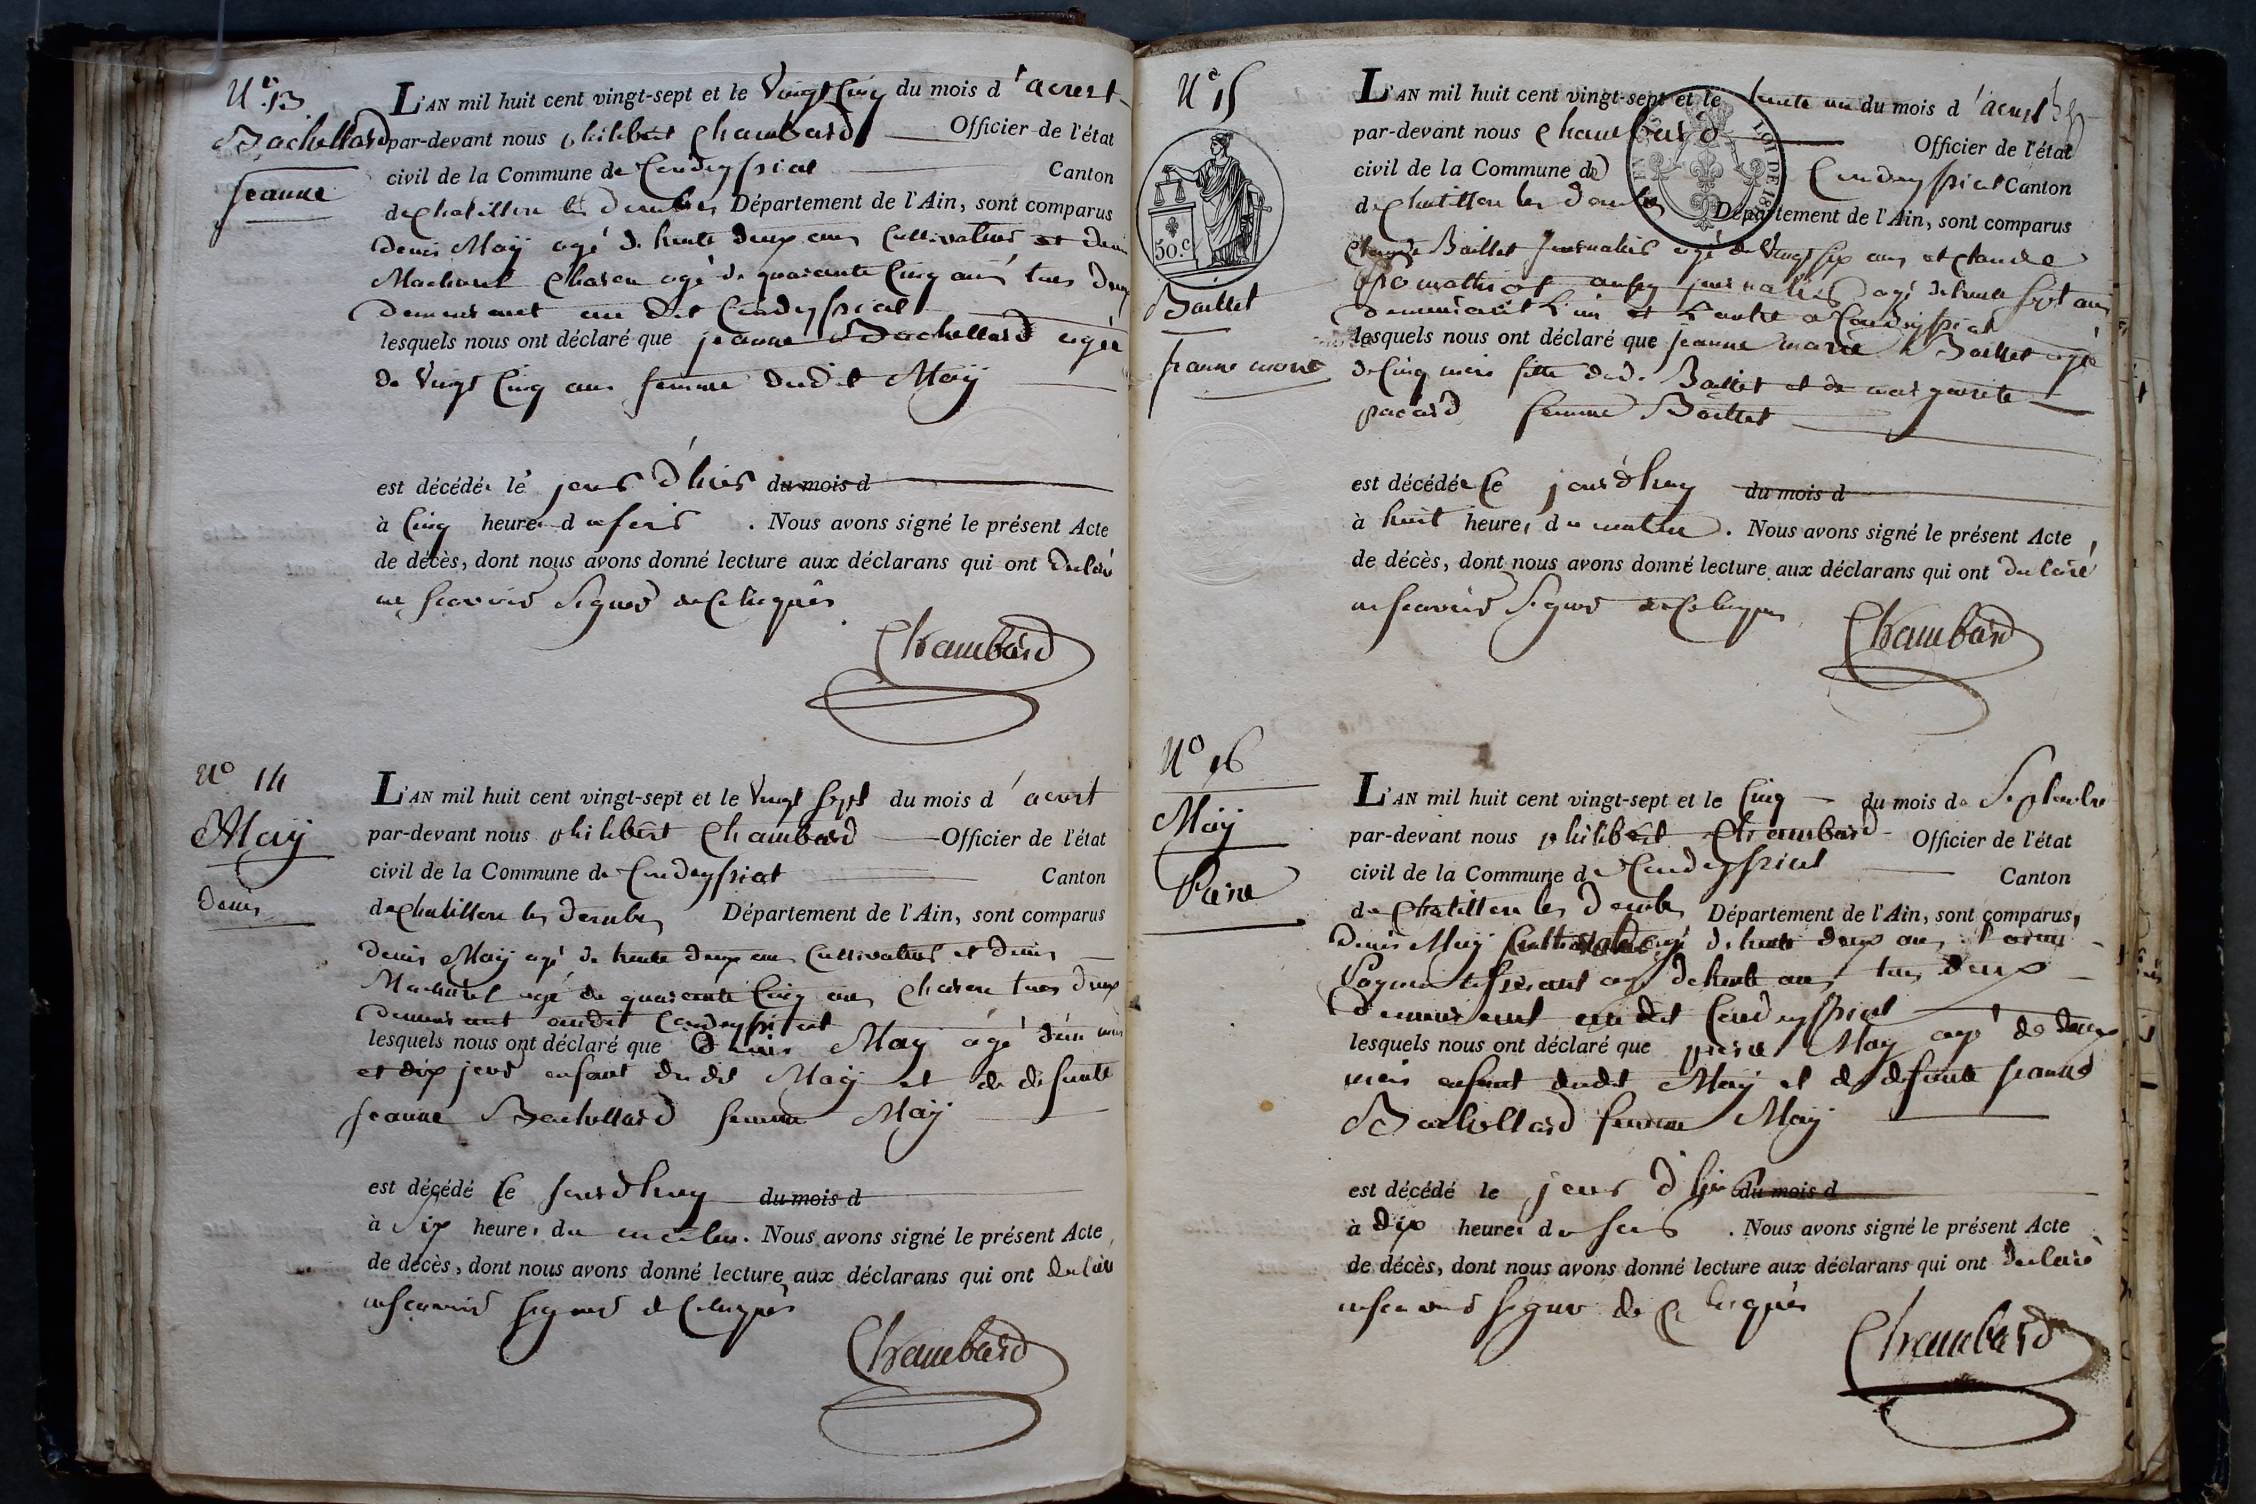 N° 13
Bachellard
jeanne
L'AN mil huit cent vingt-sept et le Vingt Cinq du mois d'aoust
par-devant nous philibert Chambard Officier de l'état
civil de la Commune de Condeyssiat Canton
de Chatillon les Dombes Département de l'Ain, sont comparus
Denis Maÿ agé de trente deux ans Cultivateur et denis
Machurel Charon agé de quarante Cinq ans tous deux
demeurant au dit Condeyssiat
lesquels nous ont déclaré que jeanne Bachellard agée
de Vingt Cinq ans femme dudit Maÿ
est décédée le jour d'hier du mois d
à Cinq heures du soir . Nous avons signé le présent Acte
de décès, dont nous avons donné lecture aux déclarans qui ont declaré
ne scavoir signer de Ce requis
Chambard
N° 14
Maÿ
denis
L'AN mil huit cent vingt-sept et le Vingt sept du mois d'aoust
par-devant nous philibert Chambard Officier de l'état
civil de la Commune de Condeyssiat Canton
de Chatillon les Dombes Département de l'Ain, sont comparus
Denis Maÿ agé de trente deux ans Cultivateur et denis
Machurel agé de quarante Cinq ans Charon tous deux
demeurant audit Condeyssiat
lesquels nous ont déclaré que denis Maÿ agé d'un mois
et dix jour enfant dudit Maÿ et de defunte
jeanne Bachellard femme Maÿ
est décédé Ce jourdhuy du mois d
à Six heures du matin. Nous avons signé le présent Acte
de décès, dont nous avons donné lecture aux déclarans qui ont declaré
ne scavoir signer de Ce requis
Chambard
N° 15
50.c
Baillet
jeanne marie
L'AN mil huit cent vingt-sept et le trente un du mois d'aoust
par-devant nous Chambard Officier de l'état
civil de la Commune de Condeyssiat Canton
de Chatillon les Dombes Département de l'Ain, sont comparus
Claude Baillet journalier agé de Vingt six ans et Claude
aussy journalier agé de trente sept ans
demeurant l'un et l'autre a Condeyssiat
lesquels nous ont déclaré que jeanne marie Baillet agée
de Cinq mois fille dud. Baillet et de marguerite
pacard femme Baillet
est décédée Ce jourdhuy du mois d
à huit heures du matin . Nous avons signé le présent Acte
de décès, dont nous avons donné lecture aux déclarans qui ont declaré
ne scavoir signer de Ce requis
Chambard
N° 16
Maÿ
Piere
L'AN mil huit cent vingt-sept et le Cinq du mois de Septembre
par-devant nous philibert Chambard Officier de l'état
civil de la Commune de Condeyssiat Canton
de Chatillon les Dombes Département de l'Ain, sont comparus,
Denis Maÿ Cultivateur agé de trente deux ans
tisserant agé de trente ans tous deux
demeurant au dit Condeyssiat
lesquels nous ont déclaré que piere Maÿ agé de deux
mois enfant dudit Maÿ et de defunte jeanne
Bachellard femme Maÿ
est décédé le jour d'hier du mois d
à dix heures du soir . Nous avons signé le présent Acte
de décès, dont nous avons donné lecture aux déclarans qui ont declaré
ne scavoir signer de Ce requis
Chambard